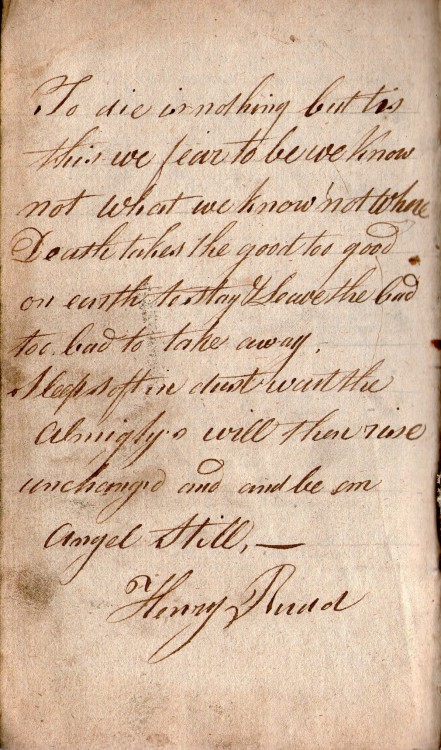 To die is nothing but tis
this we fear to be we know
not what we know not where
Death takes the good too good
on earth to stay & leave the bad
too bad to take away.
Sleep soft in dust wait the
Almigty's will then rise
unchanged and and be an
Angel Still, —
Henry Rudd